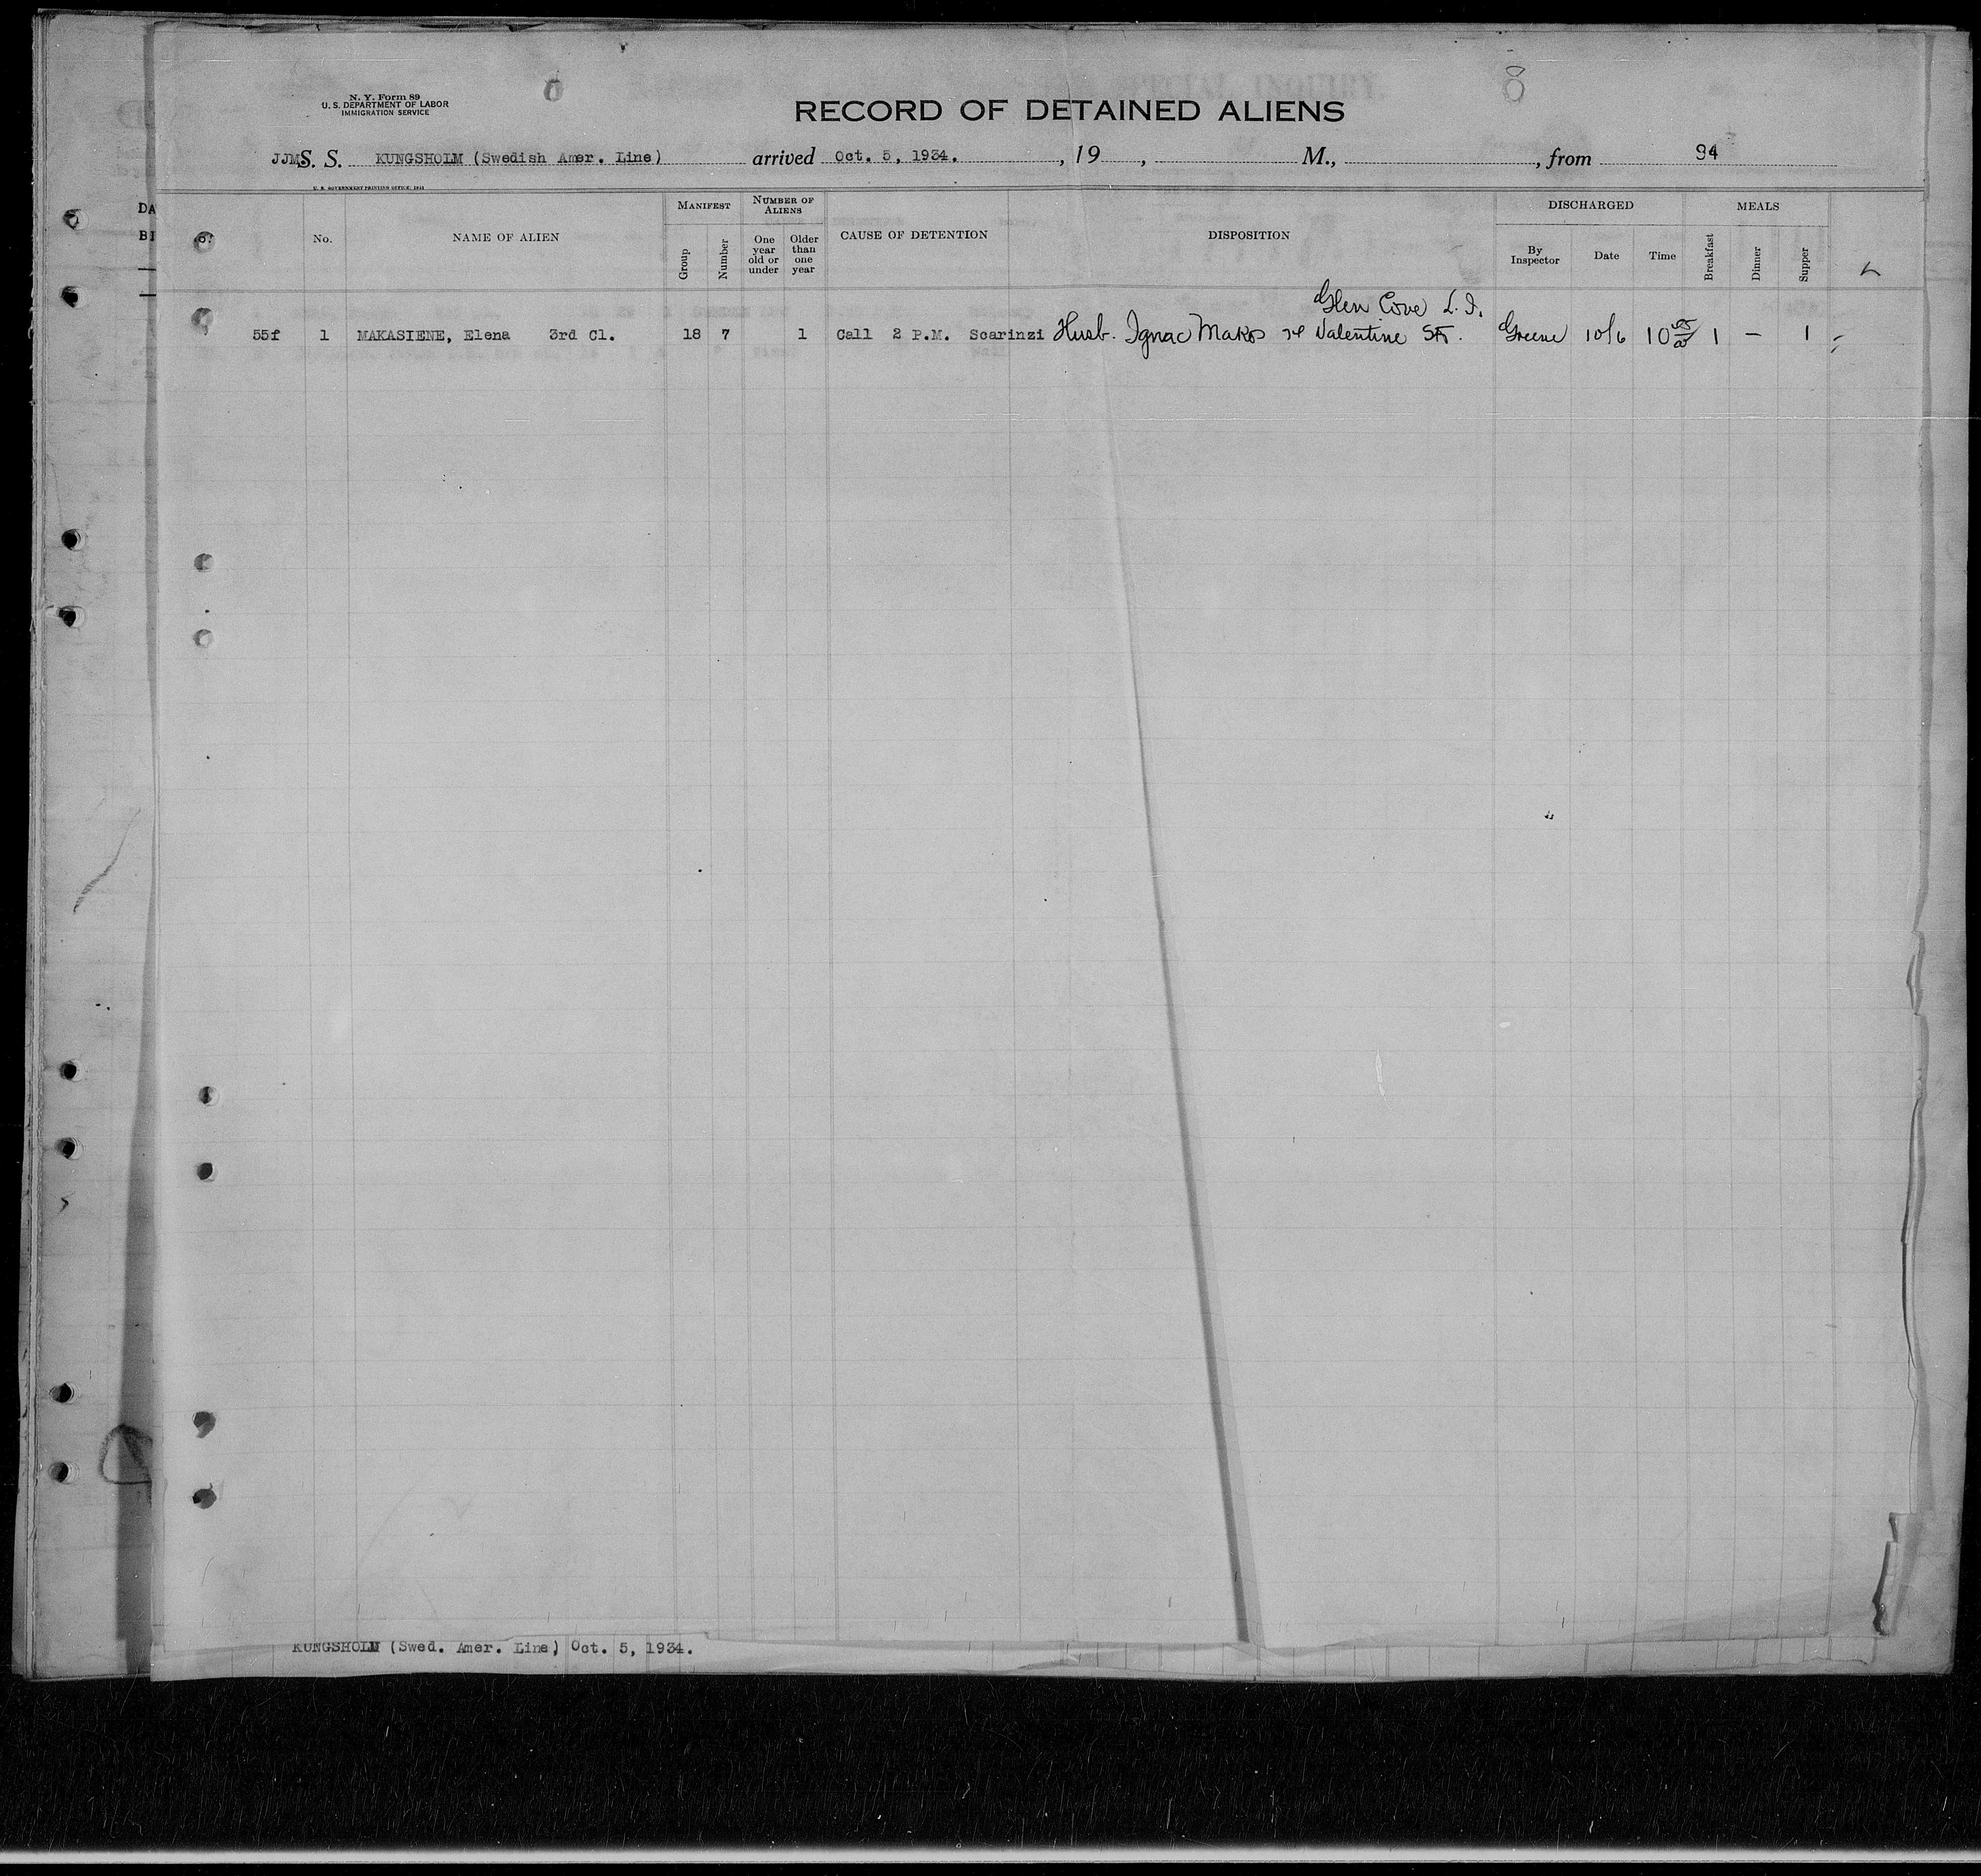 N. Y. Form 89
U. S. DEPARTMENT OF LABOR
IMMIGRATION SERVICE
RECORD OF DETAINED ALIENS
JJM S. S. KUNGSHOLM (Swedish Amer. Line) arrived Oct. 5, 1934. , 19 , M., , from 94
U. S. GOVERNMENT PRINTING OFFICE: 1931
DA
BI
No. NAME OF ALIEN MANIFEST Group Number NUMBER OF ALIENS One year old or under Older than one year CAUSE OF DETENTION DISPOSITION DISCHARGED By Inspector Date Time MEALS Breakfast Dinner Supper
Glen Cove L. I.
55f 1 MAKASIENE, Elena 3rd Cl. 18 7 1 Call 2 P.M. Scarinzi Husb. Ignac Makos Valentine St. Greene 10/6 10 1 — 1
KUNGSHOLM (Swed. Amer. Line) Oct. 5, 1934.